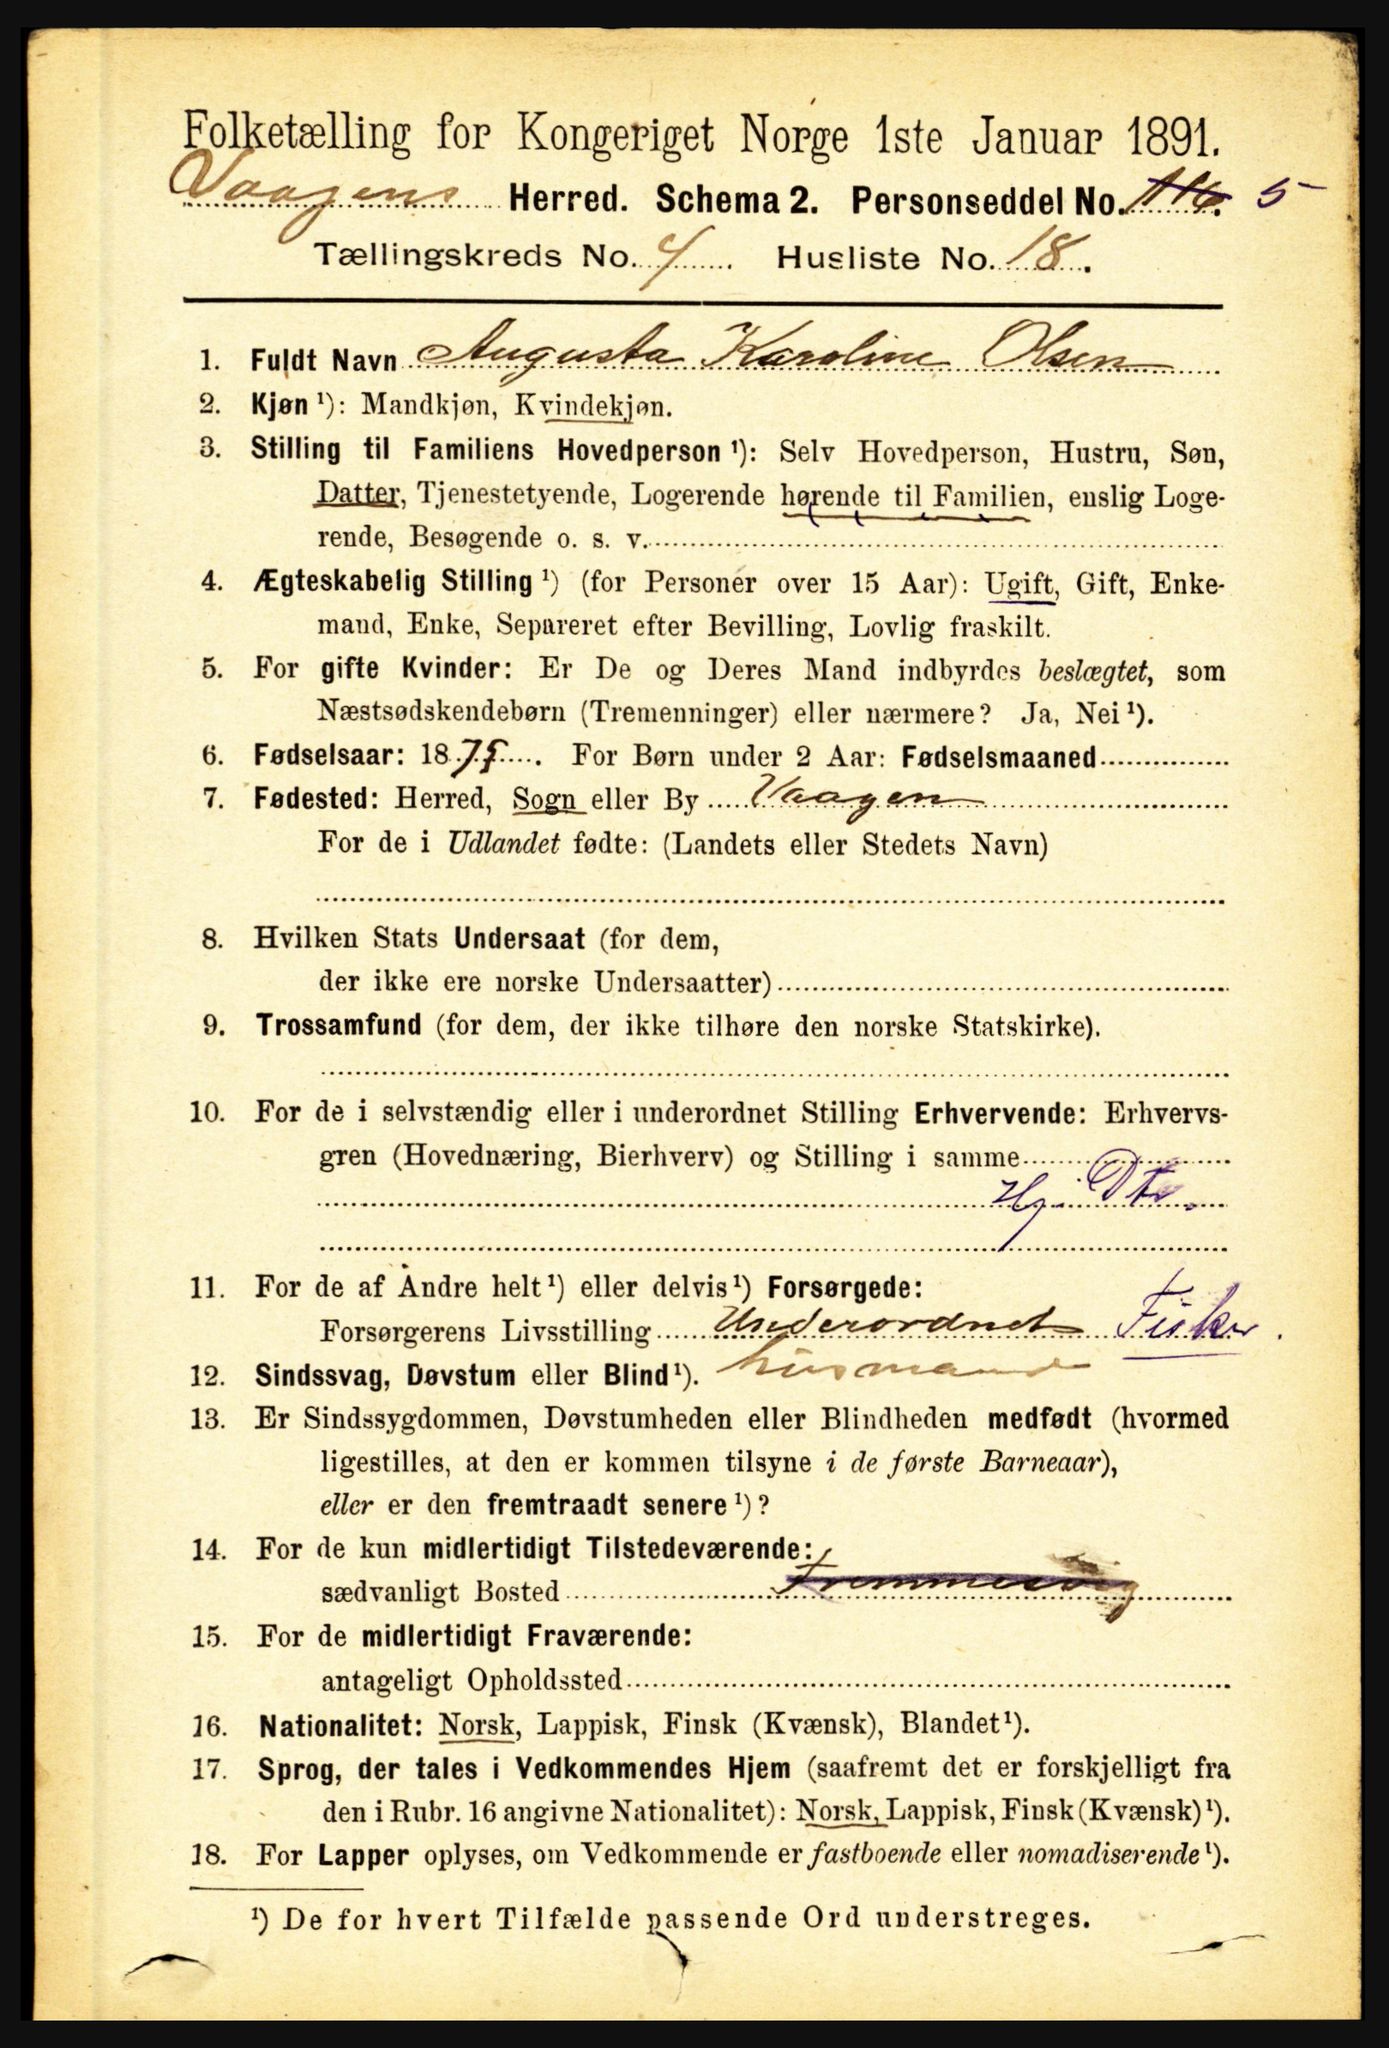 Folketælling for Kongeriget Norge 1ste Januar 1891.
Vaagens Herred. Schema 2. Personseddel No. 5
Tællingskreds No. 4. Husliste No. 18.
1. Fuldt Navn Augusta Karoline Olsen
2. Kjøn ¹): Mandkjøn, Kvindekjøn.
3. Stilling til Familiens Hovedperson ¹): Selv Hovedperson, Hustru, Søn,
Datter, Tjenestetyende, Logerende hørende til Familien, enslig Loge-
rende, Besøgende o. s. v.
4. Ægteskabelig Stilling ¹) (for Personer over 15 Aar): Ugift, Gift, Enke-
mand, Enke, Separeret efter Bevilling, Lovlig fraskilt.
5. For gifte Kvinder: Er De og Deres Mand indbyrdes beslægtet, som
Næstsødskendebørn (Tremenninger) eller nærmere? Ja, Nei ¹).
6. Fødselsaar: 1875. For Børn under 2 Aar: Fødselsmaaned
7. Fødested: Herred, Sogn eller By Vaagen
For de i Udlandet fødte: (Landets eller Stedets Navn)
8. Hvilken Stats Undersaat (for dem,
der ikke ere norske Undersaatter)
9. Trossamfund (for dem, der ikke tilhøre den norske Statskirke).
10. For de i selvstændig eller i underordnet Stilling Erhvervende: Erhvervs-
gren (Hovednæring, Bierhverv) og Stilling i samme
Hj. Dtr.
11. For de af Andre helt ¹) eller delvis ¹) Forsørgede:
Forsørgerens Livsstilling Underordnet Fisker.
12. Sindssvag, Døvstum eller Blind ¹). husmand
13. Er Sindssygdommen, Døvstumheden eller Blindheden medfødt (hvormed
ligestilles, at den er kommen tilsyne i de første Barneaar),
eller er den fremtraadt senere ¹)?
14. For de kun midlertidigt Tilstedeværende:
sædvanligt Bosted Fremmesvig
15. For de midlertidigt Fraværende:
antageligt Opholdssted
16. Nationalitet: Norsk, Lappisk, Finsk (Kvænsk), Blandet ¹).
17. Sprog, der tales i Vedkommendes Hjem (saafremt det er forskjelligt fra
den i Rubr. 16 angivne Nationalitet): Norsk, Lappisk, Finsk (Kvænsk) ¹).
18. For Lapper oplyses, om Vedkommende er fastboende eller nomadiserende ¹).
¹) De for hvert Tilfælde passende Ord understreges.